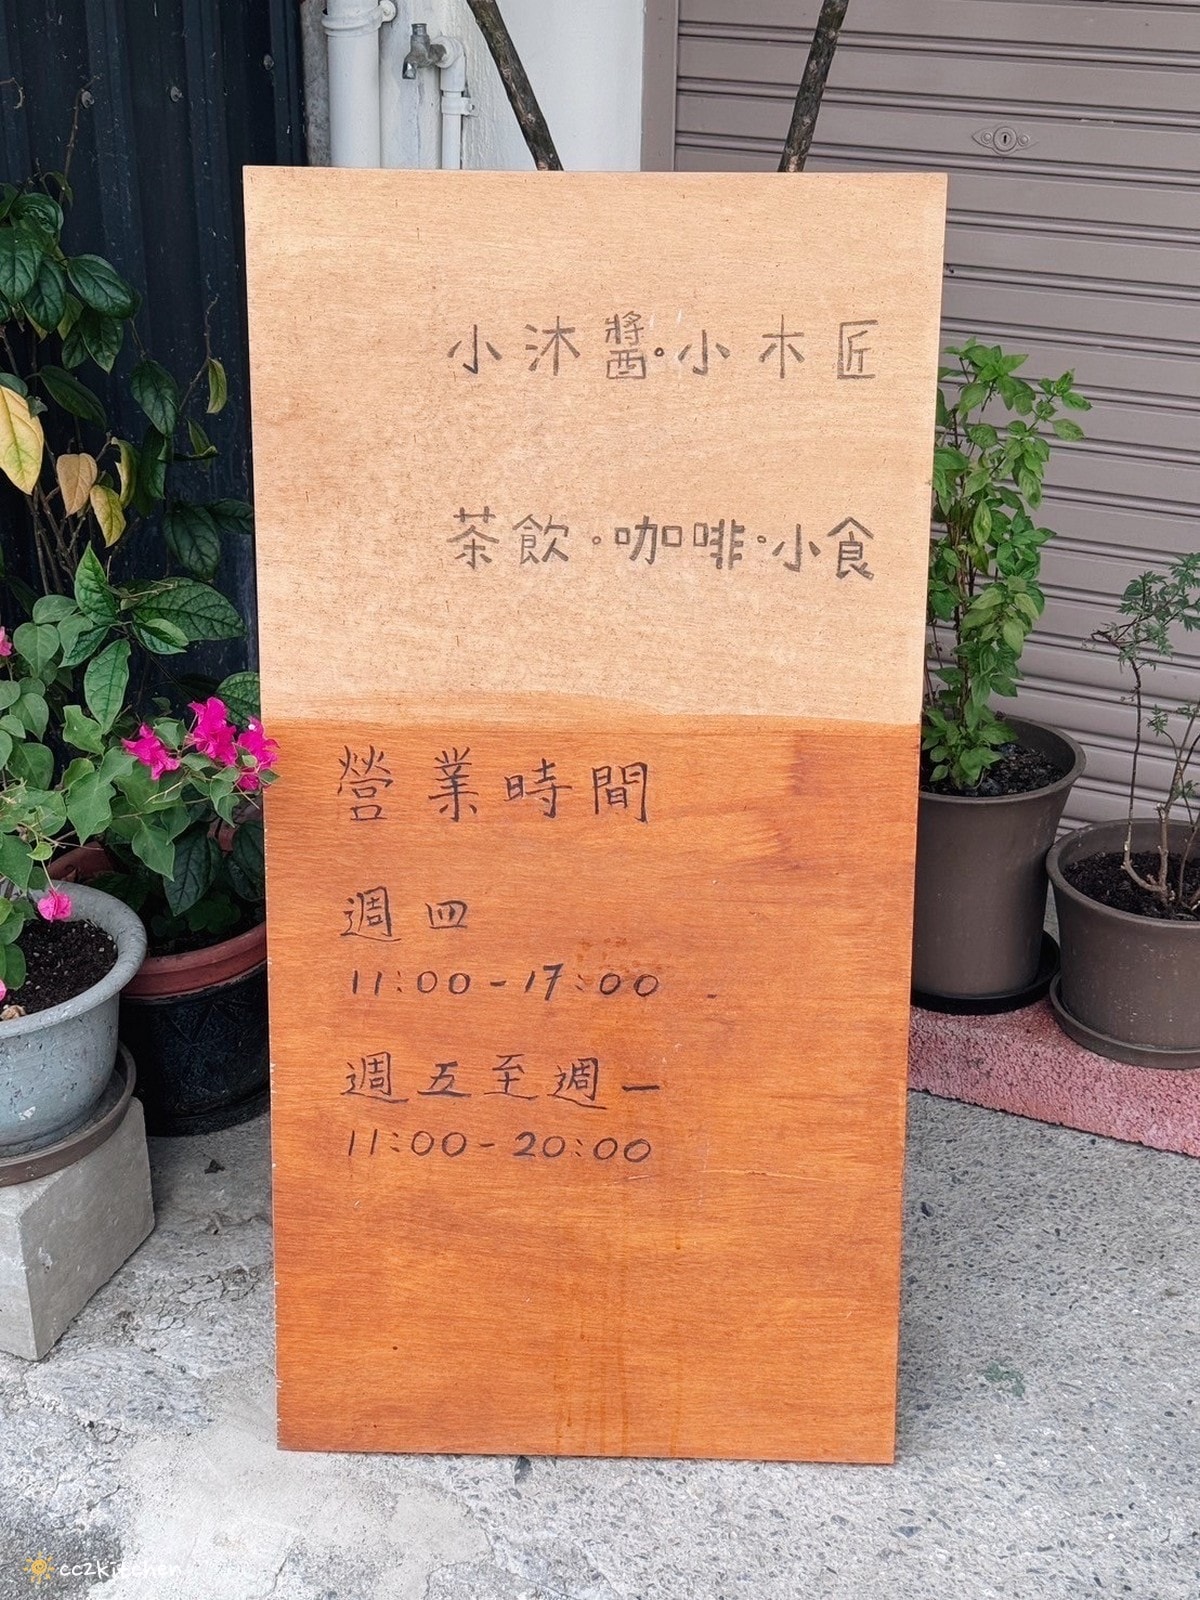 小沐醬。小木匠
茶飲。咖啡。小食
營業時間
週四
11:00-17:00
週五至週一
11:00-20:00
cc2kitchen